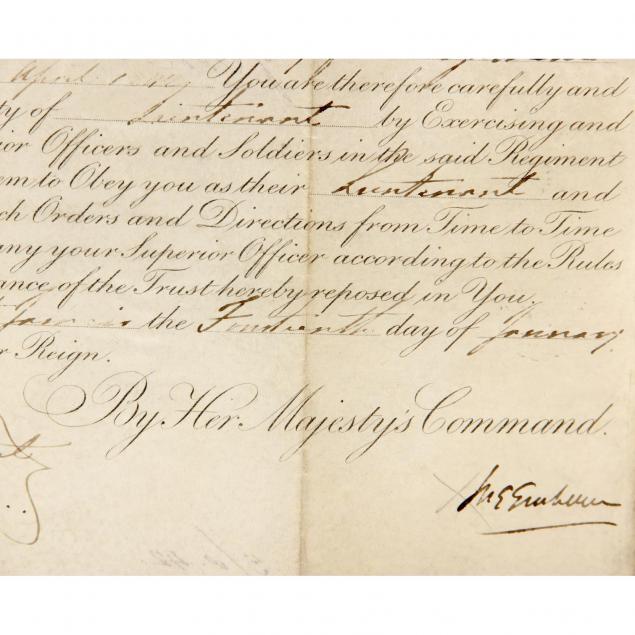 April You are therefore carefully and
ty of Lieutenant by Exercising and
ior Officers and Soldiers in the said Regiment
em to Obey you as their Lieutenant and
ch Orders and Directions from Time to Time
any your Superior Officer according to the Rules
ance of the Trust hereby reposed in You.
the day of January
r Reign.
By Her Majesty's Command.